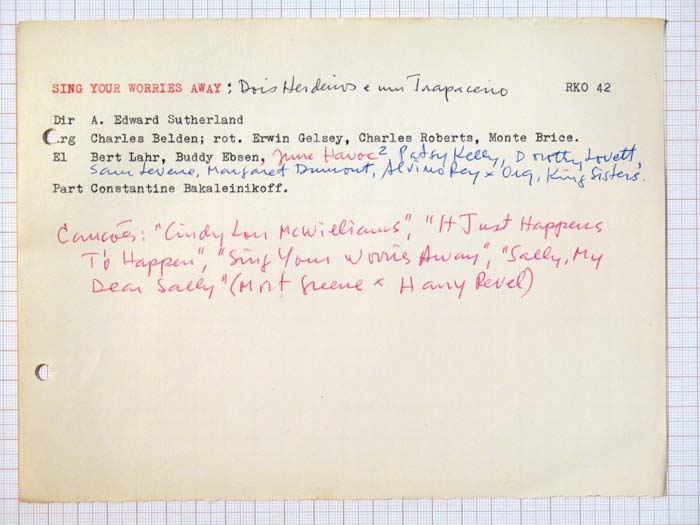 SING YOUR WORRIES AWAY : Dois Herdeiros e um Trapaceiro RKO 42
Dir A. Edward Sutherland
Arg Charles Belden; rot. Erwin Gelsey, Charles Roberts, Monte Brice.
El Bert Lahr, Buddy Ebsen, June Havoc 2 Patsy Kelly, Dorothy Lovett,
Sam Levene, Margaret Dumont, Alvino Rey x Orq, King Sisters.
Part Constantine Bakaleinikoff.
Canções: "Cindy Lou McWilliams", "It Just Happens
To Happen", "Sing Your Worries Away", "Sally, My
Dear Sally" (Mort Greene x Harry Revel)